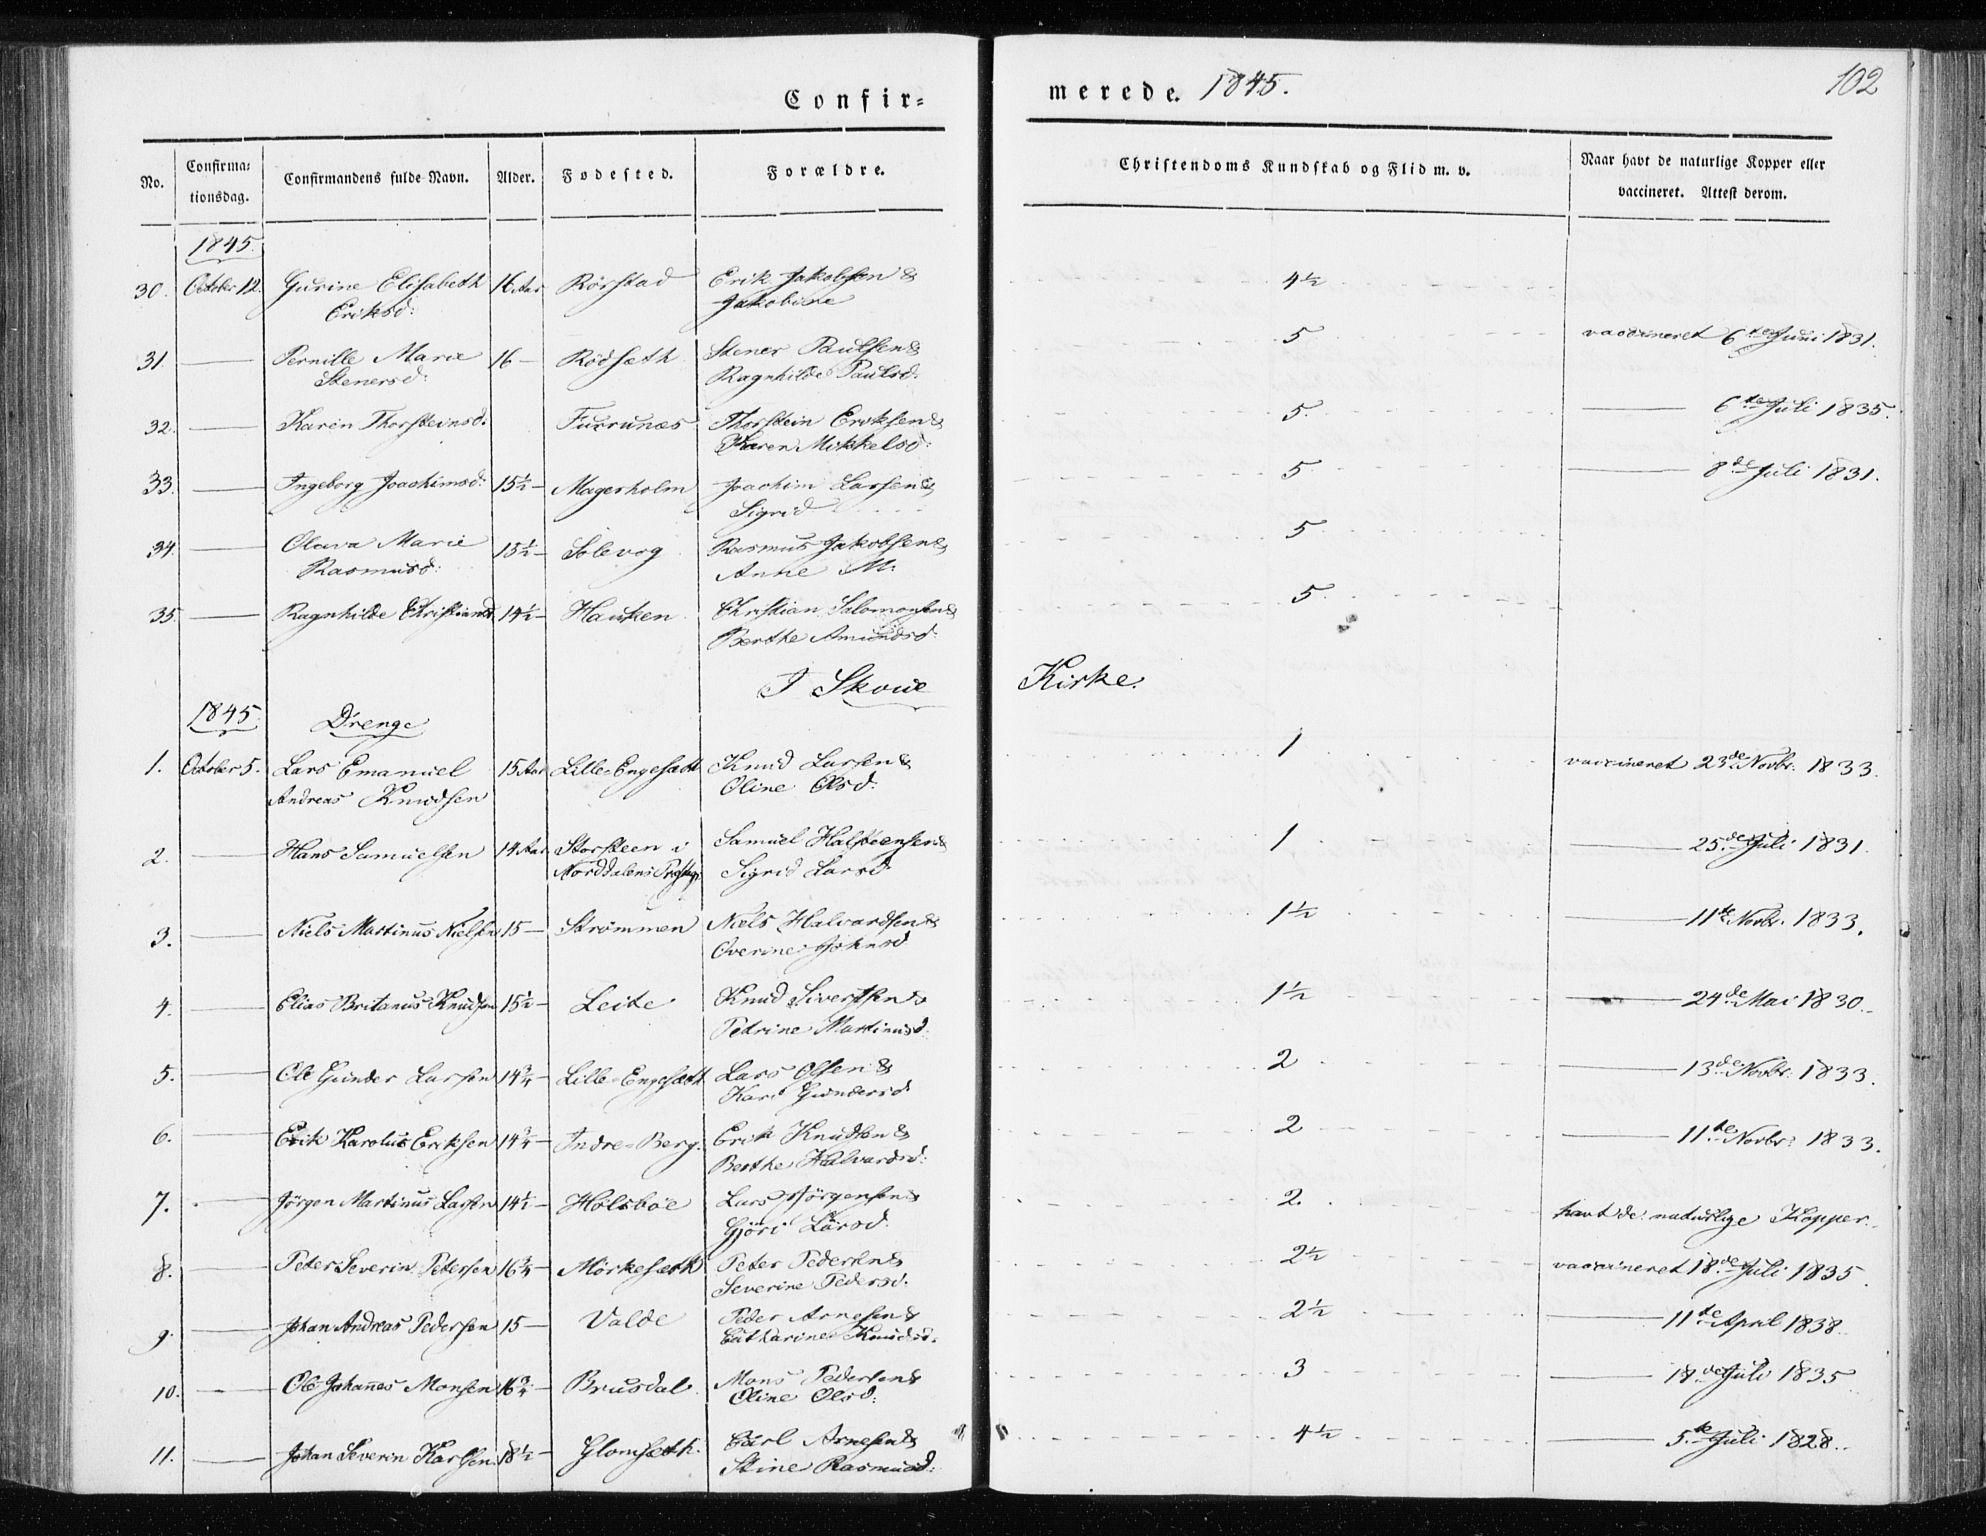 Confir=
merede. 1845.
102
No.
Confirma=
tionsdag.
Confirmandens fulde Navn.
Alder.
Fødested.
Forældre.
Christendoms Kundskab og Flid m. v.
Naar havt de naturlige Kopper eller
vaccineret. Attest derom.
1845.
30. October 12. Gurine Elisabeth 16 Aar Rörstad Erik Jakobsen & 4½
Eriksd: Jakobine
31. — Pernille Marie 16 — Rödseth Stener Paulsen & 5 vaccineret 6te Juni 1831.
Stenersd: Ragnhilde Paulsd:
32. — Karen Thorsteinsd: Furrunæs Thorstein Eriksen & 5. — 6te Juli 1835.
Karen Mikkelsd:
33. — Ingeborg Joachimsd: 15½ — Magerholm Joachim Larsen & 5 — 8de Juli 1831.
Sigrid
34. — Olava Marie 15½ — Solevog Rasmus Jakobsen & 5
Rasmusd: Anne M:
35. — Ragnhilde Christiansd 14½ — Hauken Christian Salomonsen & 5.
Berthe Amundsd:
I Skoue Kirke.
1845. Drenge
1. October 5. Lars Emanuel 15 Aar Lille-Engesæth Knud Larsen & 1 vaccineret 23de Novbr: 1833.
Andreas Knudsen Oline Olsd:
2. — Hans Samuelsen 14 Aar Storsteen i Samuel Halsteensen & 1 — 25de Juli 1831.
Norddalens Prgj. Sigrid Larsd.
3. — Niels Martinus Nielsen 15 — Strømmen Niels Halvardsen & 1½ — 11te Novbr. 1833.
Overine Johnsd
4. — Elias Britanus Knudsen 15½ — Leite Knud Sivertsen & 1½ — 24de Mai 1830.
Petrine Martinusd.
5. — Ole Gunder Larsen 14¾ — Lille-Engesæth Lars Olsen & 2 — 13de Novbr. 1833.
Kari Gundersd.
6. — Erik Karolus Eriksen 14¾ — Indre-Berg. Erik Knudsen & 2 — 11te Novbr: 1833.
Berthe Halvardsd:
7. — Jörgen Martinus Larsen 14½ — Holsböe Lars Jörgensen & 2. havt de naturlige Kopper.
Gjöri Larsd.
8. — Peter Severin Petersen 16¾ — Mörkesæth Peter Pedersen & 2½ vaccineret 18de Juli 1835.
Severine Pedersd:
9. — Johan Andreas Pedersen 15 — Valde Peder Arnesen & 2½ — 11te April 1838.
Catharine Knudsd.
10. — Ole Johannes Monsen 16¾ — Brusdal Mons Pedersen & 3 — 18de Juli 1835
Oline Olsd:
11. — Johan Severin Karlsen 18½ — Glomsæth. Carl Arnesen & 4½ — 5te Juli 1828.
Stine Rasmusd: